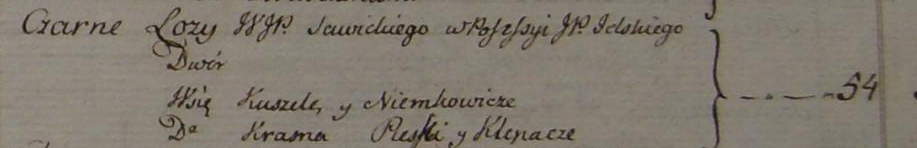 Czarne Lozy WJP. Sawickiego w Possessyi JP. Jelskiego
Dwór
Wsię Kuszele, y Niemkowicze 54
Do Krasna Pleski y Klepacze